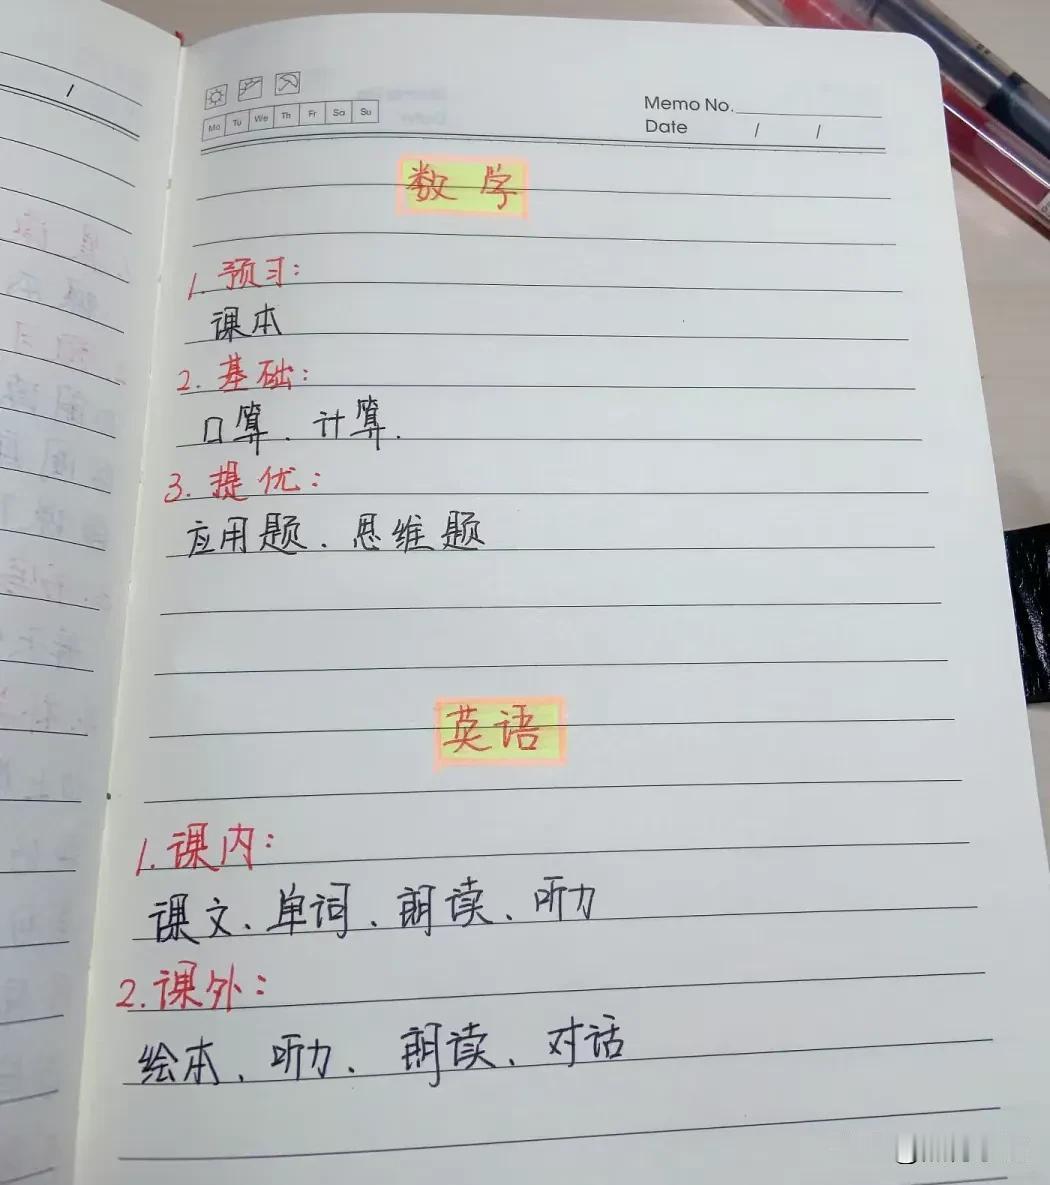 Mo Tu We Th Fr Sa Su
Memo No.
Date / /
数学
1. 预习:
课本
2. 基础:
口算、计算.
3. 提优:
应用题、思维题
英语
1. 课内:
课文、单词、朗读、听力
2. 课外:
绘本、听力、朗读、对话